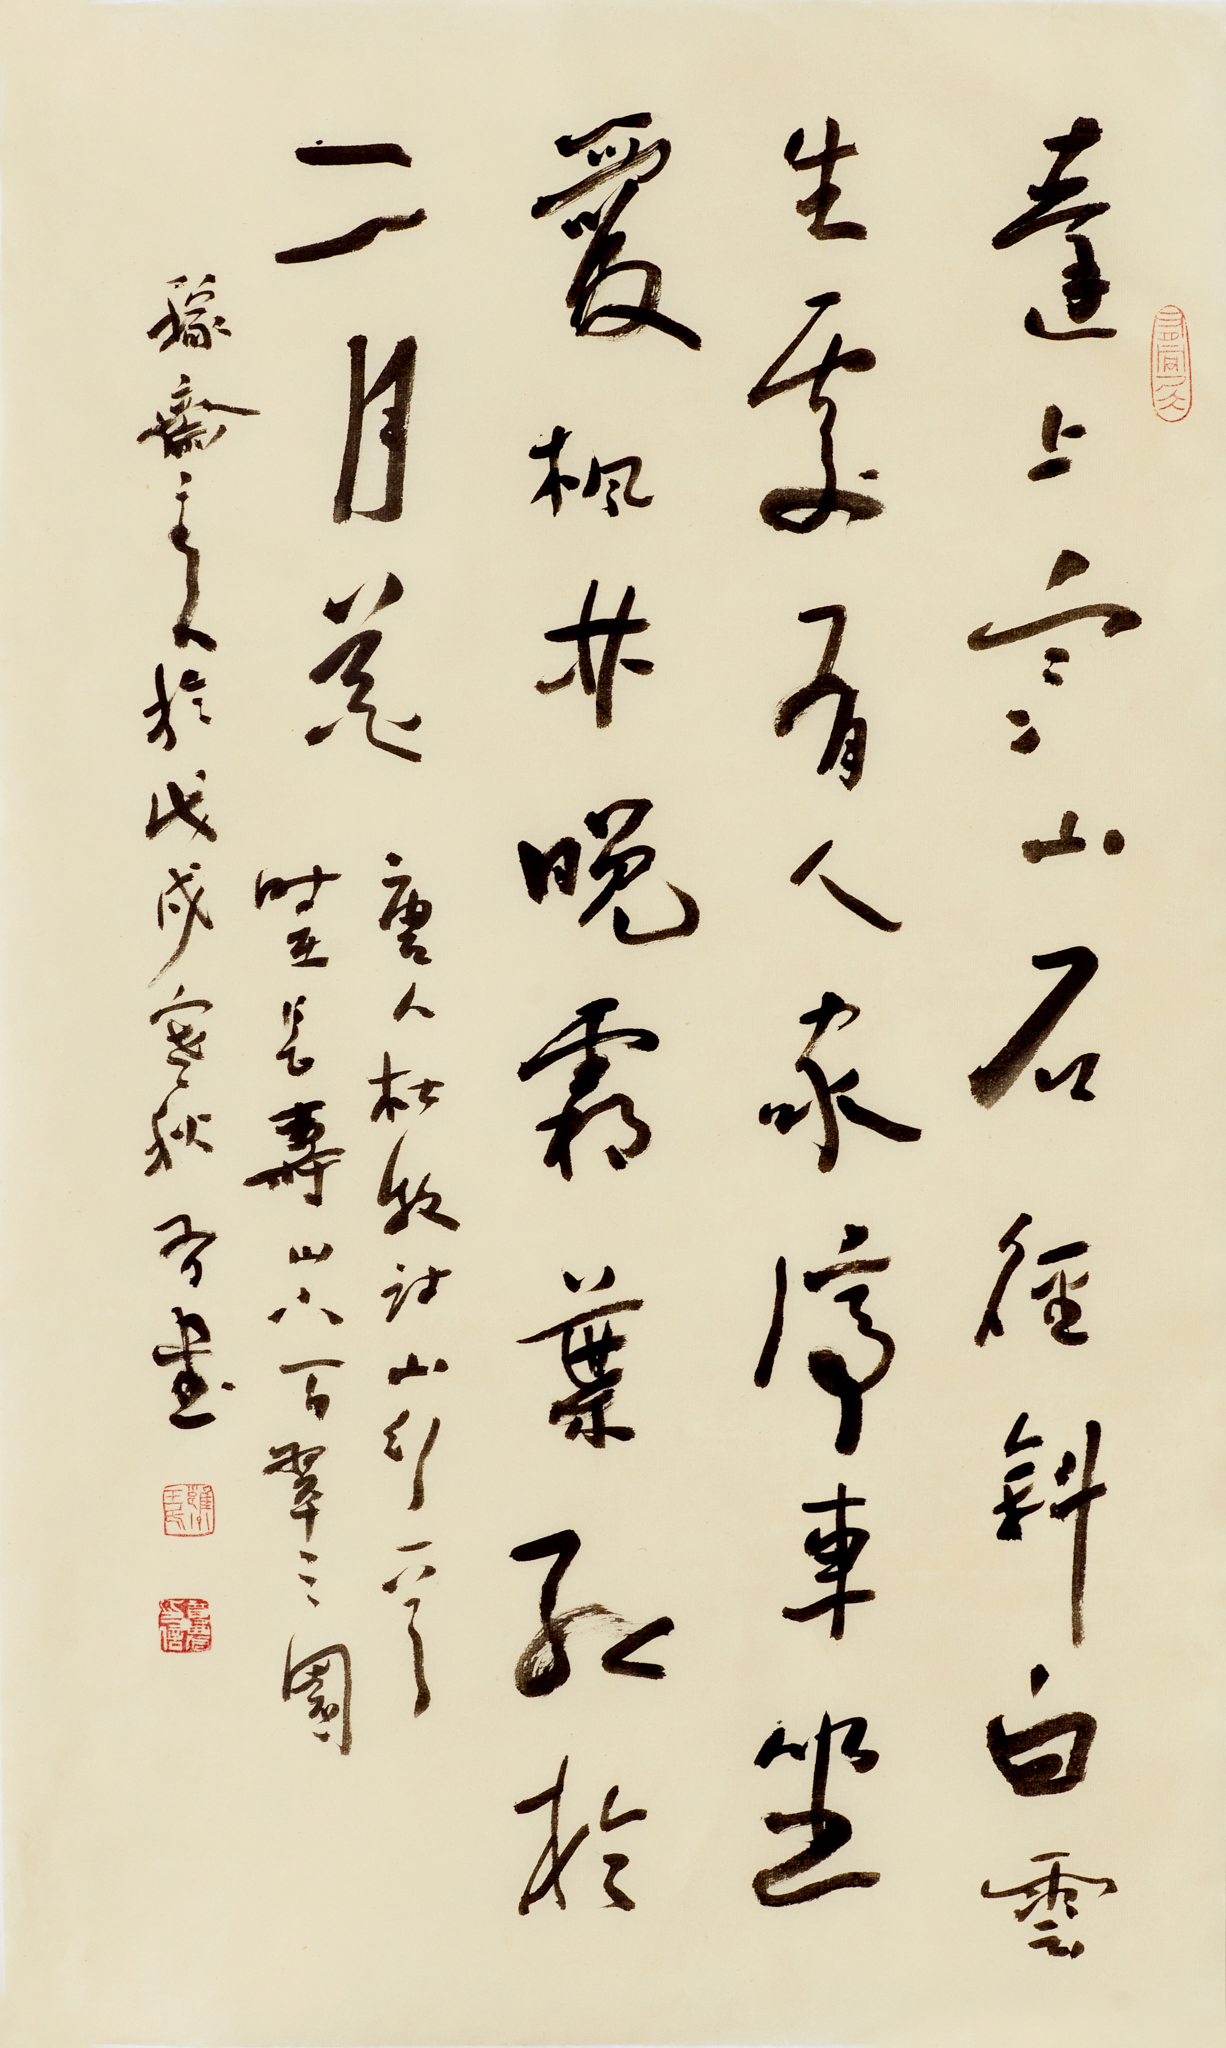 遠上寒山石徑斜白雲
生處有人家停車坐
愛楓林晚霜葉紅於
二月花
唐人杜牧詩山行一首
長壽山百翠之園
齋主人於戊戌寒秋書